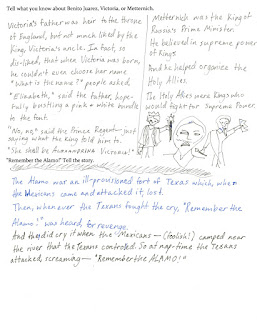 Tell what you know about Benito Juarez, Victoria, or Metternich.
Victoria's Father was heir to the throne
of England, but not much liked by the
King, Victoria's uncle. In fact, so
dis-liked, that when Victoria was born,
he couldn't even choose her name.
"What is the name?" people asked
"Elizabeth," said the father, hope-
fully bustling a pink & white bundle
to the font.
"No, no," said the Prince Regent—just
saying what the king told him to.
"She shall be Victoria!"
Metternich was the King of
Russia's Prime Minister.
He believed in supreme power
of Kings.
And he helped organize the
Holy Allies.
The Holy Allies were Kings who
would fight for Supreme Power.
"Remember the Alamo" Tell the story.
The Alamo was an ill-provisioned fort of Texas which, when
the Mexicans came and attacked it, lost.
Then, whenever the Texans fought the cry, "Remember the
Alamo!" was heard, for revenge.
And they did cry it when the Mexicans—(foolish!) camped near
the river that the Texans controlled. So at nap-time the Texans
attacked, screaming—"Remember the ALAMO!"